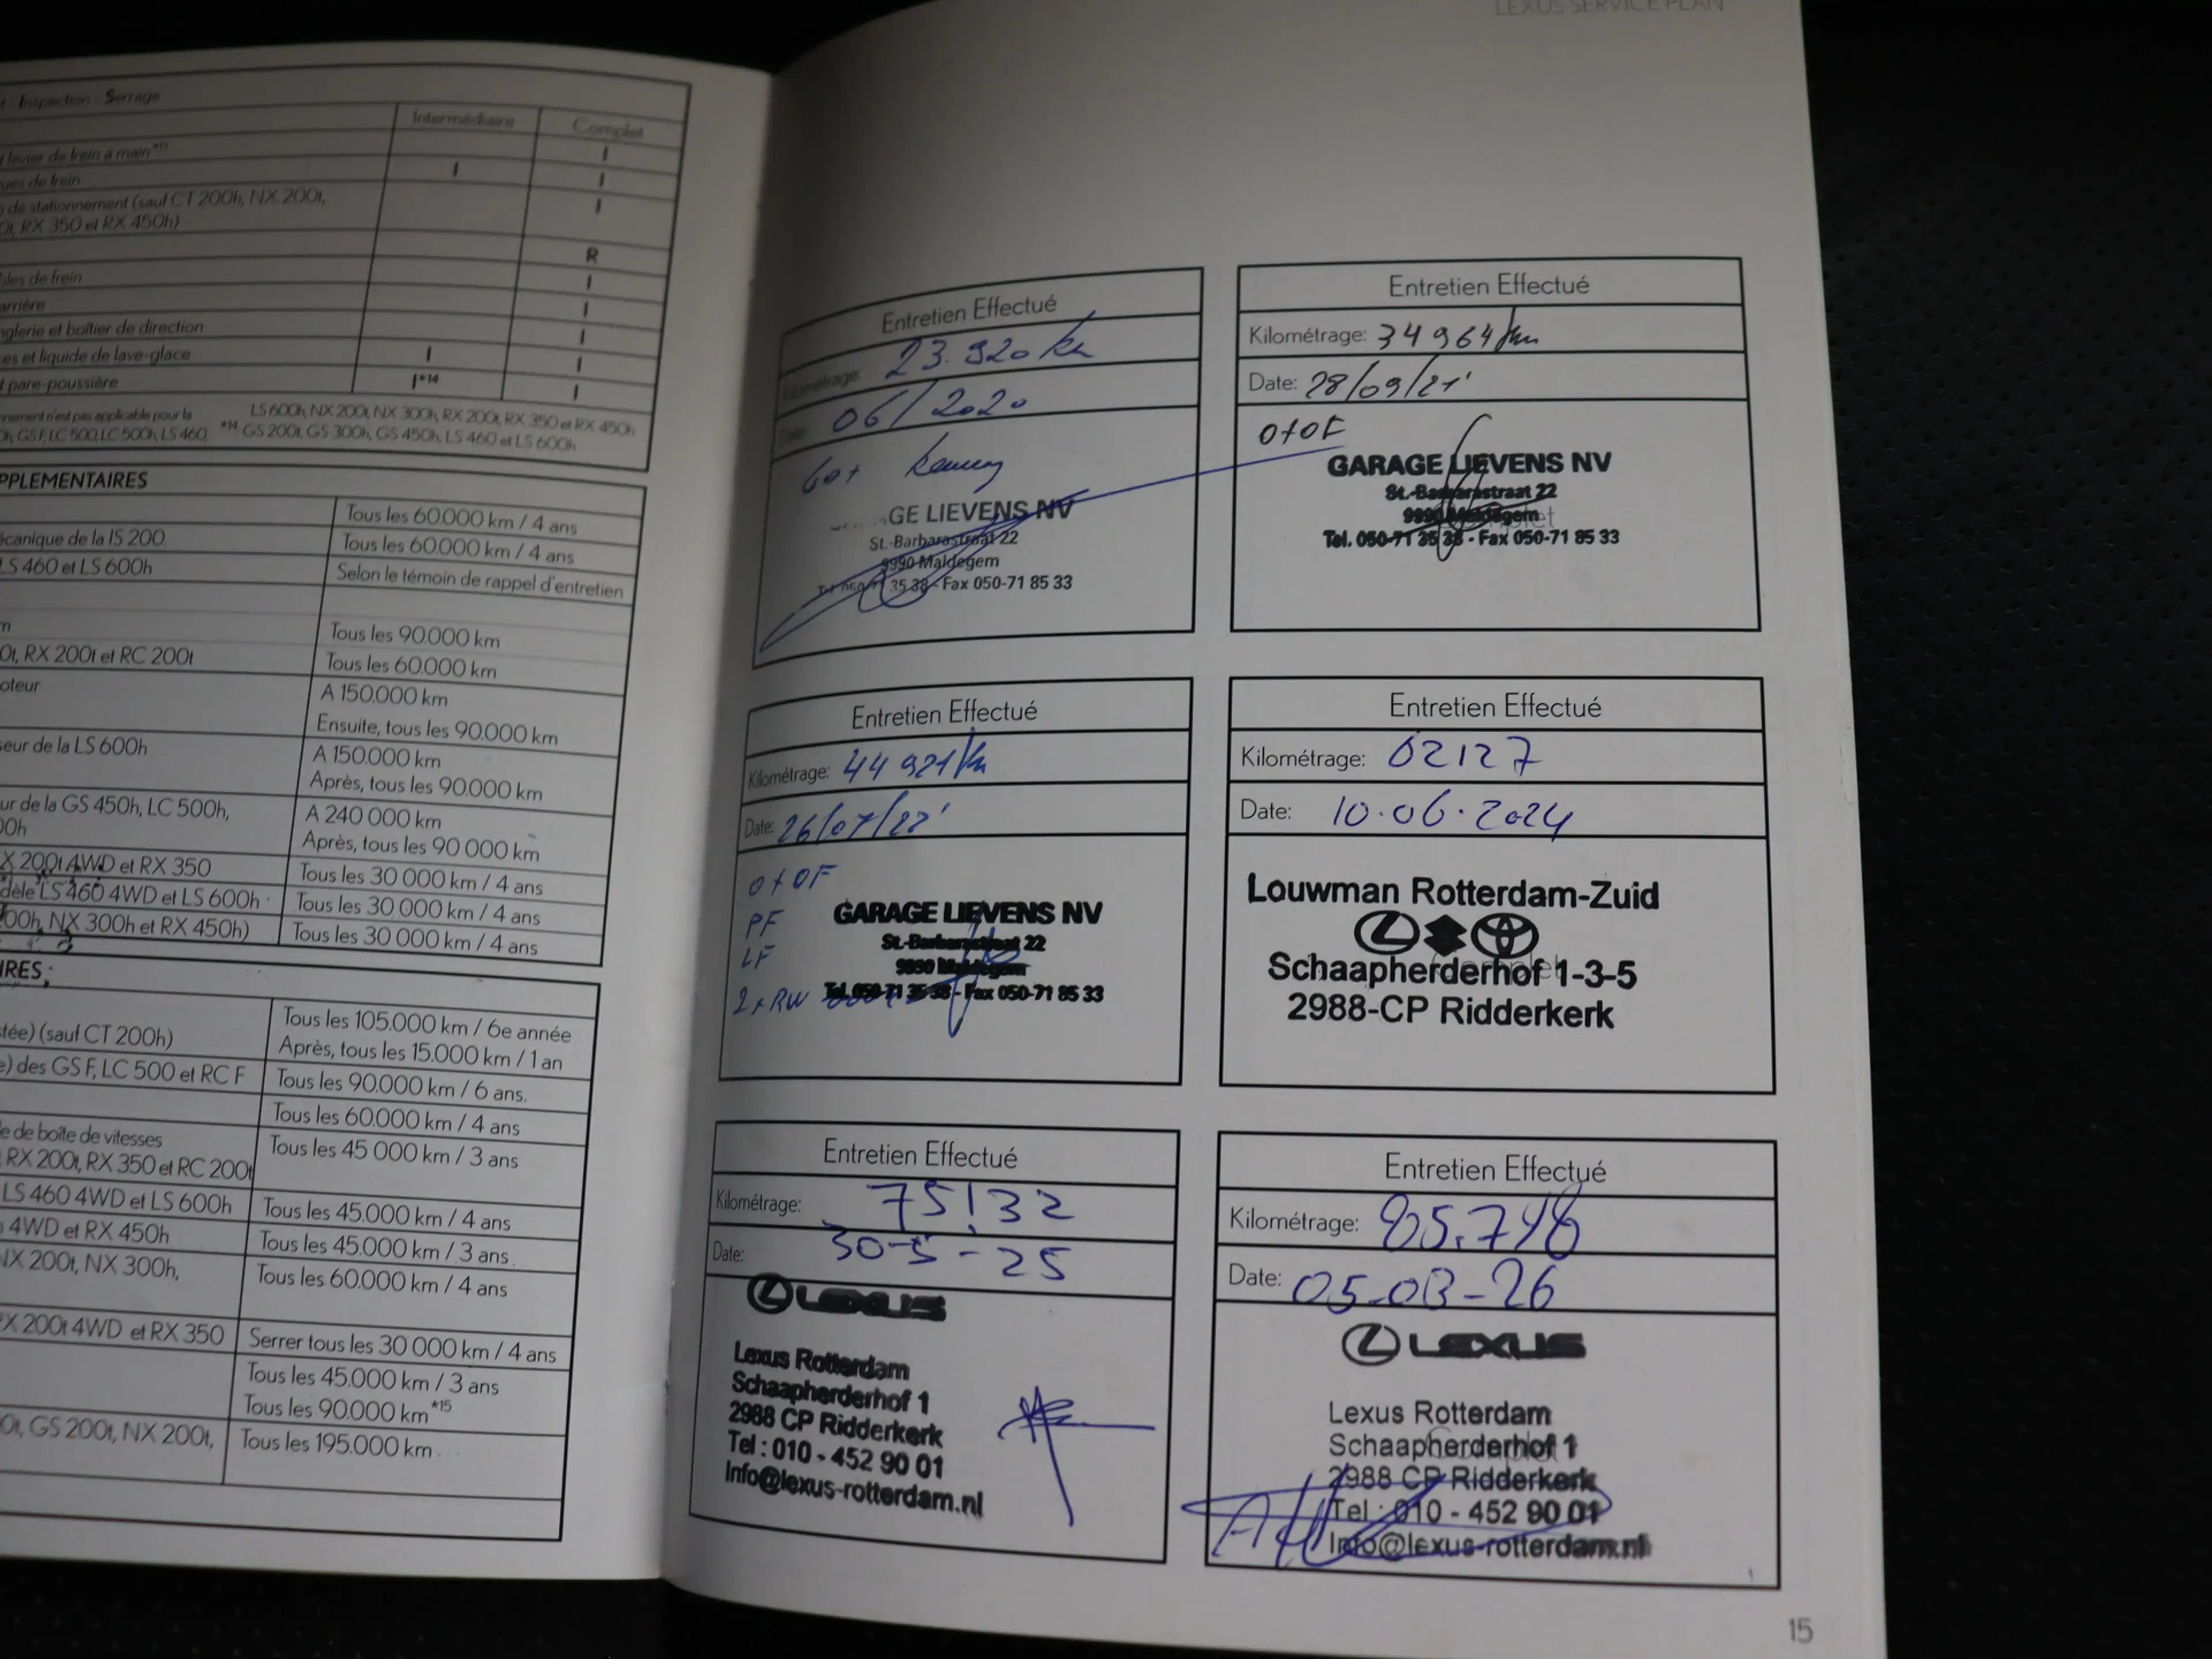 LEXUS SERVICE PLAN
Inspection - Serrage
Intermédiaire Complet
levier de frein à main*¹³ I
ues de frein I I
de stationnement (sauf CT 200h, NX 200t, I
0t, RX 350 et RX 450h)
R
bles de frein I
arrière I
nglerie et boîtier de direction I
es et liquide de lave-glace I I
t pare-poussière I*¹⁴ I
nnement n'est pas applicable pour la
0h, GS F, LC 500, LC 500h, LS 460,
*¹⁴ LS 600h, NX 200t, NX 300h, RX 200t, RX 350 et RX 450h
GS 200t, GS 300h, GS 450h, LS 460 et LS 600h
PPLEMENTAIRES
Tous les 60.000 km / 4 ans
écanique de la IS 200. Tous les 60.000 km / 4 ans
LS 460 et LS 600h Selon le témoin de rappel d'entretien
m Tous les 90.000 km
0t, RX 200t et RC 200t Tous les 60.000 km
oteur A 150.000 km
Ensuite, tous les 90.000 km
seur de la LS 600h A 150.000 km
Après, tous les 90.000 km
ur de la GS 450h, LC 500h, A 240 000 km
00h Après, tous les 90 000 km
X 200t 4WD et RX 350 Tous les 30 000 km / 4 ans
dèle LS 460 4WD et LS 600h Tous les 30.000 km / 4 ans
00h, NX 300h et RX 450h) Tous les 30 000 km / 4 ans
IRES;
Tous les 105.000 km / 6e année
tée) (sauf CT 200h) Après, tous les 15.000 km / 1 an
e) des GS F, LC 500 et RC F Tous les 90.000 km / 6 ans.
Tous les 60.000 km / 4 ans
e de boîte de vitesses Tous les 45 000 km / 3 ans
RX 200t, RX 350 et RC 200t
LS 460 4WD et LS 600h Tous les 45.000 km / 4 ans
4WD et RX 450h Tous les 45.000 km / 3 ans
NX 200t, NX 300h, Tous les 60.000 km / 4 ans
X 200t 4WD et RX 350 Serrer tous les 30 000 km / 4 ans
Tous les 45.000 km / 3 ans
Tous les 90.000 km*¹⁵
0t, GS 200t, NX 200t, Tous les 195.000 km
Entretien Effectué
Kilométrage: 23.920 km
Date: 06/2020
GE LIEVENS NV
St.-Barbarastraat 22
9990 Maldegem
35 38 - Fax 050-71 85 33
Entretien Effectué
Kilométrage: 34 964 km
Date: 28/09/21'
O+OF
GARAGE LIEVENS NV
St.-Barbarastraat 22
9990 Maldegem
Tel. 050-71 35 38 - Fax 050-71 85 33
Entretien Effectué
Kilométrage: 44 921 km
Date: 26/07/22'
O+OF
PF
LF
2xRW
GARAGE LIEVENS NV
St.-Barbarastraat 22
9990 Maldegem
Tel. 050-71 35 38 - Fax 050-71 85 33
Entretien Effectué
Kilométrage: 02127
Date: 10.06.2024
Louwman Rotterdam-Zuid
Schaapherderhof 1-3-5
2988-CP Ridderkerk
Entretien Effectué
Kilométrage: 75132
Date: 30-5-25
LEXUS
Lexus Rotterdam
Schaapherderhof 1
2988 CP Ridderkerk
Tel : 010 - 452 90 01
Info@lexus-rotterdam.nl
Entretien Effectué
Kilométrage: 85.748
Date: 05-03-26
LEXUS
Lexus Rotterdam
Schaapherderhof 1
2988 CP Ridderkerk
Tel : 010 - 452 90 01
Info@lexus-rotterdam.nl
15